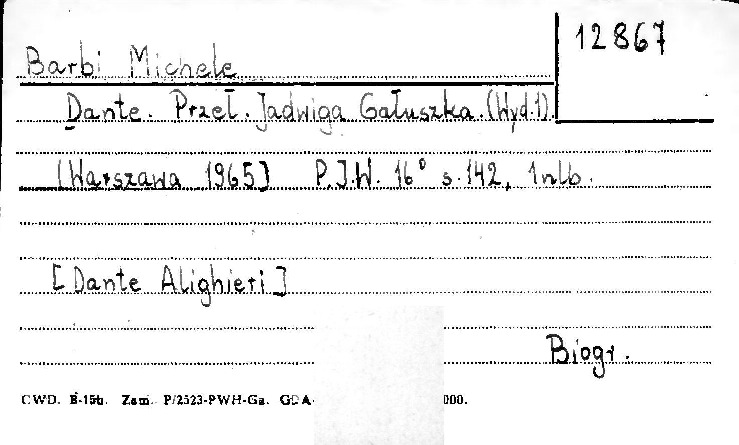 12867
Barbi Michele
Dante. Przeł. Jadwiga Gałuszka. (Wyd.1).
[Warszawa 1965] P.I.W. 16° s.142, 1nlb.
[Dante Alighieri]
Biogr.
CWD. B-15b. Zam. P/2523-PWH-Ga. GDA- 000.